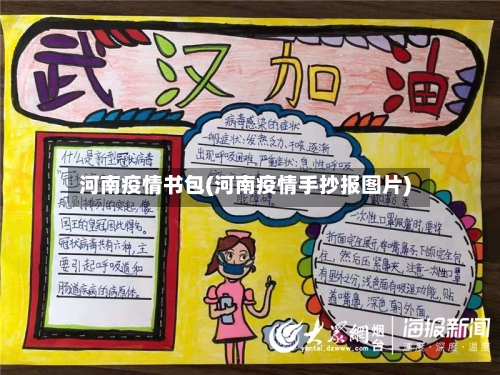 武汉加油
病毒感染的症状
一般症状:发热、乏力、干咳、逐渐
出现呼吸困难,严重症状:急性呼吸
什么是新型冠状病毒
河南疫情书包(河南疫情手抄报图片)
规则排列的突起,像
国王的皇冠因此得名。
冠状病毒共有六种,主
要引起呼吸道和
肠道疾病的病原体。
一次性口罩佩戴时,要将
折面完全展开,将嘴、鼻、下颌完全包
住,然后压紧鼻夹,注意一次性口罩
有里外之分,浅色面有吸湿功能,贴
着嘴鼻,深色朝外面。
大众网烟台
yantai.dzwww.com
海报新闻
速度·深度·温度